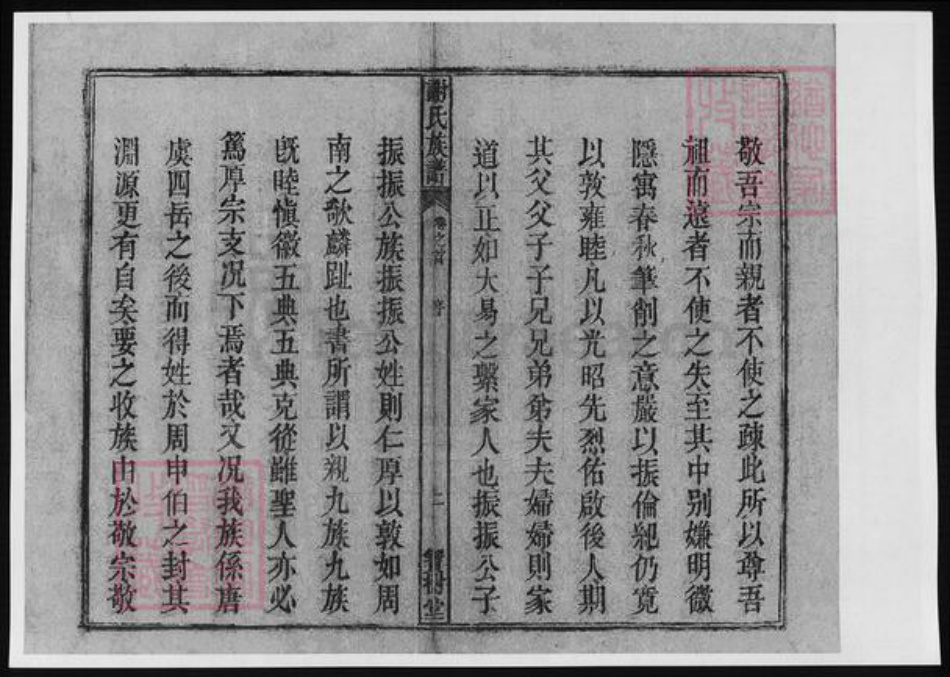 敬吾宗而親者不使之疎此所以尊吾
祖而遠者不使之失至其中別嫌明微
隱寓春秋筆削之意嚴以振倫紀仍寬
以敦雍睦凡以光昭先烈佑啟後人期
其父父子子兄兄弟弟夫夫婦婦則家
道以正如大易之繫家人也振振公子
謝氏族譜
卷之首
寶樹堂
振振公族振振公姓則仁厚以敦如周
南之歌麟趾也書所謂以親九族九族
旣睦愼徽五典五典克從雖聖人亦必
篤厚宗支况下焉者哉又况我族係唐
虞四岳之後而得姓於周申伯之封其
淵源更有自矣要之收族由於敬宗敬